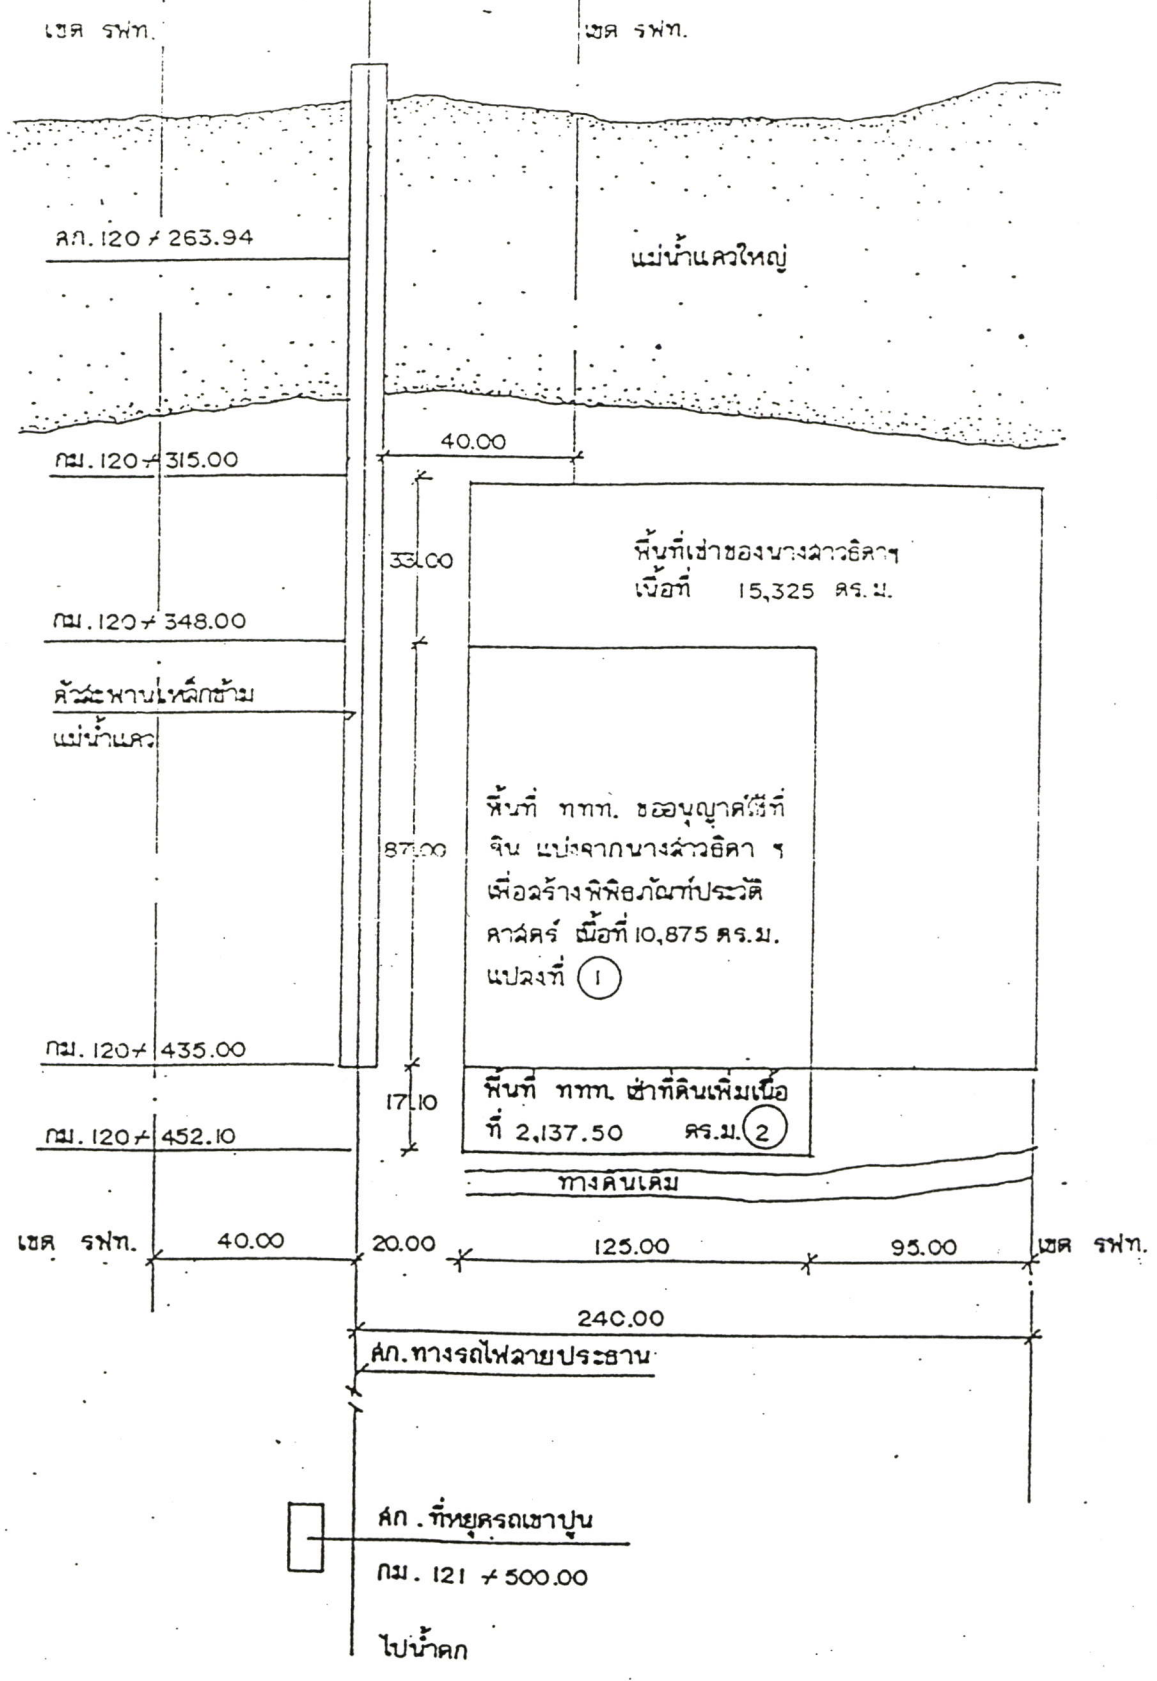 เขต รฟท.
เขต รฟท.
ศก.120+263.94
แม่น้ำแควใหญ่
40.00
กม.120+315.00
33.00
พื้นที่เช่าของนางสาวธิดาฯ
เนื้อที่ 15,325 ตร.ม.
กม.120+348.00
ตัวสะพานเหล็กข้าม
แม่น้ำแคว
พื้นที่ ททท. ขออนุญาตใช้ที่
ดิน แบ่งจากนางสาวธิดา ฯ
87.00
เพื่อสร้างพิพิธภัณฑ์ประวัติ
ศาสตร์ เนื้อที่ 10,875 ตร.ม.
แปลงที่ 1
กม.120+435.00
17.10
พื้นที่ ททท. เช่าที่ดินเพิ่มเนื้อ
ที่ 2,137.50 ตร.ม. 2
กม.120+452.10
ทางดินเดิม
เขต รฟท. 40.00 20.00 125.00 95.00 เขต รฟท.
240.00
ศก.ทางรถไฟสายประธาน
ศก. ที่หยุดรถเขาปูน
กม. 121+500.00
ไปน้ำตก